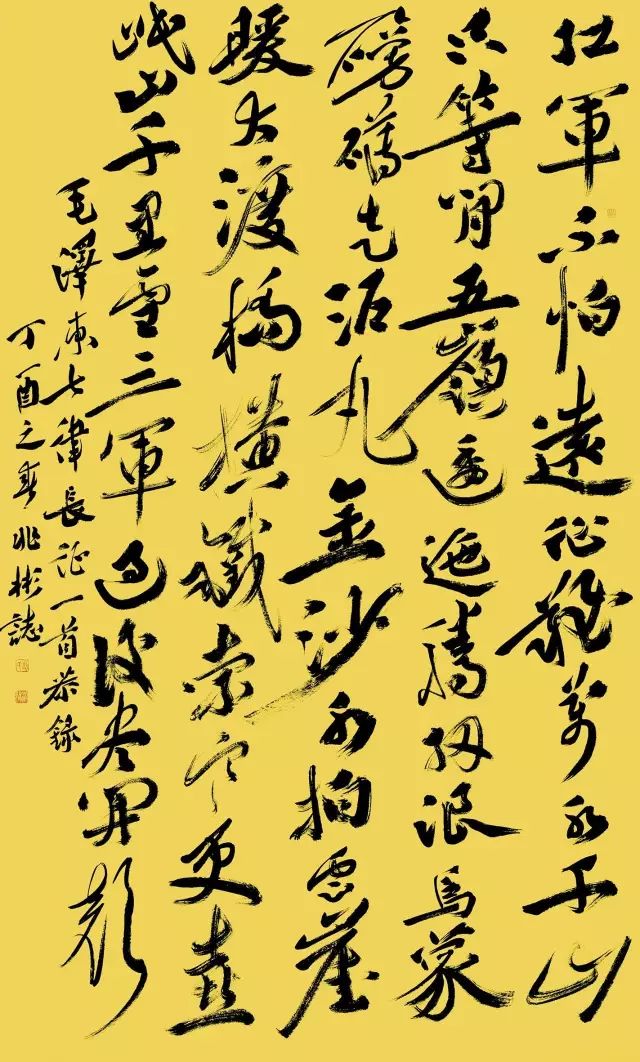 紅軍不怕遠征難萬水千山
只等閒五嶺逶迤騰細浪烏蒙
磅礴走泥丸金沙水拍雲崖
暖大渡橋橫鐵索寒更喜
岷山千里雪三軍過後盡開顏
毛澤東七律長征一首恭錄
丁酉之春兆彬誌